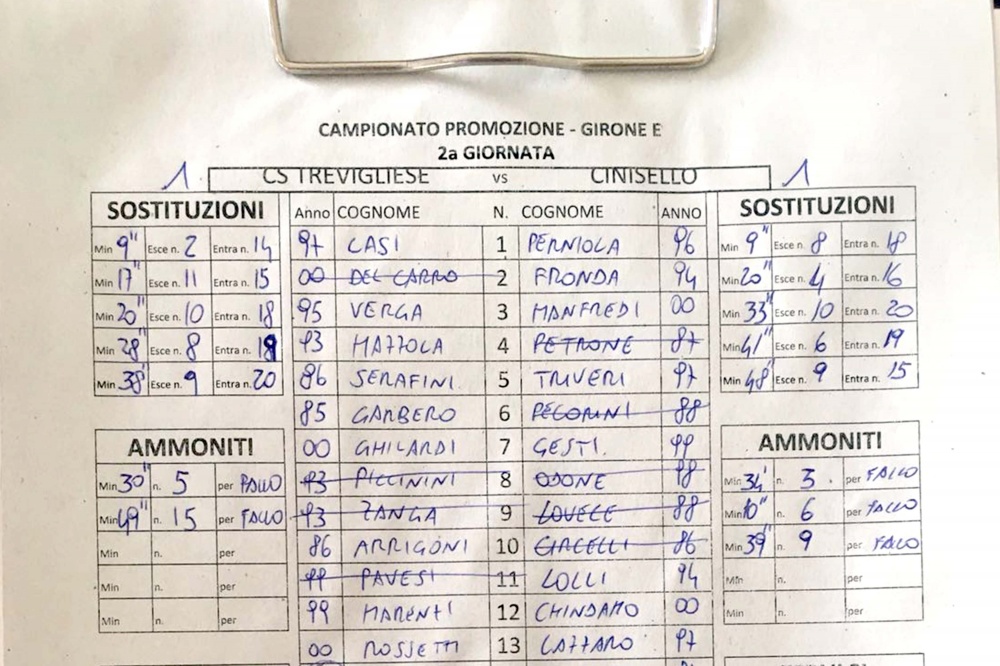 CAMPIONATO PROMOZIONE - GIRONE E
2a GIORNATA
1 CS TREVIGLIESE vs CINISELLO 1
SOSTITUZIONI
Min 9" Esce n. 2 Entra n. 14
Min 17" Esce n. 11 Entra n. 15
Min 20" Esce n. 10 Entra n. 18
Min 28" Esce n. 8 Entra n.
Min 38' Esce n. 9 Entra n. 20
AMMONITI
Min 30" n. 5 per FALLO
Min 49" n. 15 per FALLO
Min n. per
Min n. per
Min n. per
Anno COGNOME N. COGNOME ANNO
97 CASI 1 PERNIOLA 96
00 DEL CARRO 2 FRONDA 94
95 VERGA 3 MANFREDI 00
93 MAZZOLA 4 PETRONE 87
86 SERAFINI 5 TRIVERI 97
85 GARBERO 6 PECORINI 88
00 GHILARDI 7 GESTI 99
93 PICCININI 8 ODONE 98
93 ZANGA 9 LOVECE 88
86 ARRIGONI 10 CIRCELLI 86
99 PAVESI 11 LOLLI 94
99 MARENTI 12 CHINDAMO 00
00 ROSSETTI 13 CATTARO 97
SOSTITUZIONI
Min 9" Esce n. 8 Entra n. 18
Min 20" Esce n. 4 Entra n. 16
Min 33" Esce n. 10 Entra n. 20
Min 41" Esce n. 6 Entra n. 19
Min 48" Esce n. 9 Entra n. 15
AMMONITI
Min 34' n. 3 per FALLO
Min 10" n. 6 per FALLO
Min 39" n. 9 per FALLO
Min n. per
Min n. per